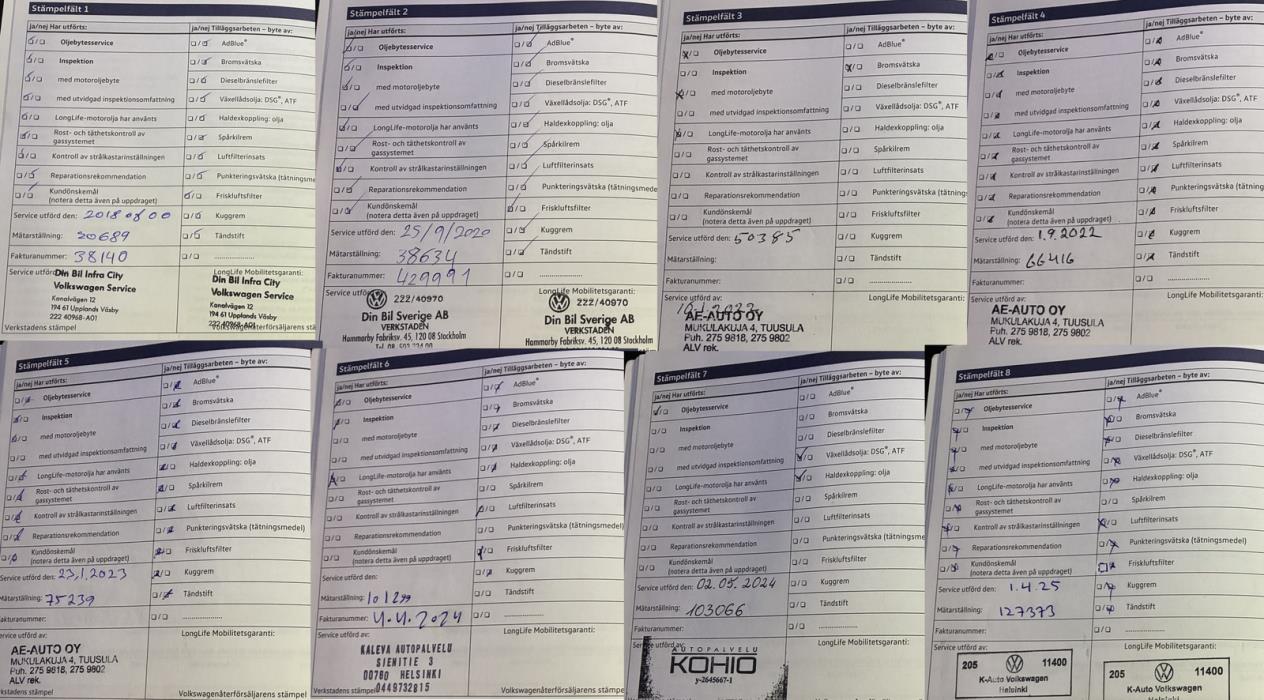 Stämpelfält 1
ja/nej Har utförts:
ja/nej Tilläggsarbeten – byte av:
Oljebytesservice
AdBlue®
Inspektion
Bromsvätska
med motoroljebyte
Dieselbränslefilter
med utvidgad inspektionsomfattning
Växellådsolja: DSG®, ATF
LongLife-motorolja har använts
Haldexkoppling: olja
Rost- och täthetskontroll av
gassystemet
Spårkilrem
Kontroll av strålkastarinställningen
Luftfilterinsats
Reparationsrekommendation
Punkteringsvätska (tätningsme
Kundönskemål
(notera detta även på uppdraget)
Friskluftsfilter
Service utförd den:
Kuggrem
Mätarställning: 20689
Tändstift
Fakturanummer: 38140
Service utförd
LongLife Mobilitetsgaranti:
Din Bil Infra City
Volkswagen Service
Kanalvägen 12
194 61 Upplands Väsby
222 40968-A01
Din Bil Infra City
Volkswagen Service
Kanalvägen 12
194 61 Upplands Väsby
Verkstadens stämpel
Stämpelfält 2
ja/nej Har utförts:
ja/nej Tilläggsarbeten – byte av:
Oljebytesservice
AdBlue®
Inspektion
Bromsvätska
med motoroljebyte
Dieselbränslefilter
med utvidgad inspektionsomfattning
Växellådsolja: DSG®, ATF
LongLife-motorolja har använts
Haldexkoppling: olja
Rost- och täthetskontroll av
gassystemet
Spårkilrem
Kontroll av strålkastarinställningen
Luftfilterinsats
Reparationsrekommendation
Punkteringsvätska (tätningsmede
Kundönskemål
(notera detta även på uppdraget)
Friskluftsfilter
Service utförd den: 25/9/2020
Kuggrem
Mätarställning: 38634
Tändstift
Fakturanummer: 429991
LongLife Mobilitetsgaranti:
222/40970
Din Bil Sverige AB
VERKSTADEN
Hammarby Fabriksv. 45, 120 08 Stockholm
222/40970
Din Bil Sverige AB
VERKSTADEN
Hammarby Fabriksv. 45, 120 08 Stockholm
Stämpelfält 3
ja/nej Har utförts:
ja/nej Tilläggsarbeten – byte av:
Oljebytesservice
AdBlue®
Inspektion
Bromsvätska
med motoroljebyte
Dieselbränslefilter
med utvidgad inspektionsomfattning
Växellådsolja: DSG®, ATF
LongLife-motorolja har använts
Haldexkoppling: olja
Rost- och täthetskontroll av
gassystemet
Spårkilrem
Kontroll av strålkastarinställningen
Luftfilterinsats
Reparationsrekommendation
Punkteringsvätska (tätning
Kundönskemål
(notera detta även på uppdraget)
Friskluftsfilter
Service utförd den: 50385
Kuggrem
Mätarställning:
Tändstift
Fakturanummer:
Service utförd av:
LongLife Mobilitetsgaranti:
AE-AUTO OY
MUKULAKUJA 4, TUUSULA
Puh. 275 9818, 275 9802
ALV rek.
Stämpelfält 4
ja/nej Har utförts:
ja/nej Tilläggsarbeten – byte av:
Oljebytesservice
AdBlue®
Inspektion
Bromsvätska
med motoroljebyte
Dieselbränslefilter
med utvidgad inspektionsomfattning
Växellådsolja: DSG®, ATF
LongLife-motorolja har använts
Haldexkoppling: olja
Rost- och täthetskontroll av
gassystemet
Spårkilrem
Kontroll av strålkastarinställningen
Luftfilterinsats
Reparationsrekommendation
Punkteringsvätska (tätning
Kundönskemål
(notera detta även på uppdraget)
Friskluftsfilter
Service utförd den: 1.9.2022
Kuggrem
Mätarställning: 66416
Tändstift
Fakturanummer:
Service utförd av:
LongLife Mobilitetsgaranti:
AE-AUTO OY
MUKULAKUJA 4, TUUSULA
Puh. 275 9818, 275 9802
ALV rek.
Stämpelfält 5
ja/nej Har utförts:
ja/nej Tilläggsarbeten – byte av:
Oljebytesservice
AdBlue®
Inspektion
Bromsvätska
med motoroljebyte
Dieselbränslefilter
med utvidgad inspektionsomfattning
Växellådsolja: DSG®, ATF
LongLife-motorolja har använts
Haldexkoppling: olja
Rost- och täthetskontroll av
gassystemet
Spårkilrem
Kontroll av strålkastarinställningen
Luftfilterinsats
Reparationsrekommendation
Punkteringsvätska (tätningsmedel)
Kundönskemål
(notera detta även på uppdraget)
Friskluftsfilter
Service utförd den: 23.1.2023
Kuggrem
Mätarställning: 75239
Tändstift
Fakturanummer:
Service utförd av:
LongLife Mobilitetsgaranti:
AE-AUTO OY
MUKULAKUJA 4, TUUSULA
Puh. 275 9818, 275 9802
ALV rek.
Verkstadens stämpel
Volkswagenåterförsäljarens stämpel
Stämpelfält 6
ja/nej Har utförts:
ja/nej Tilläggsarbeten – byte av:
Oljebytesservice
AdBlue®
Inspektion
Bromsvätska
med motoroljebyte
Dieselbränslefilter
med utvidgad inspektionsomfattning
Växellådsolja: DSG®, ATF
LongLife-motorolja har använts
Haldexkoppling: olja
Rost- och täthetskontroll av
gassystemet
Spårkilrem
Kontroll av strålkastarinställningen
Luftfilterinsats
Reparationsrekommendation
Punkteringsvätska (tätningsmedel)
Kundönskemål
(notera detta även på uppdraget)
Friskluftsfilter
Service utförd den:
Kuggrem
Mätarställning: 101299
Tändstift
Fakturanummer: 4.4.2024
Service utförd av:
LongLife Mobilitetsgaranti:
KALEVA AUTOPALVELU
SIENITIE 3
00760 HELSINKI
0449732815
Verkstadens stämpel
Volkswagenåterförsäljarens stämpel
Stämpelfält 7
ja/nej Har utförts:
ja/nej Tilläggsarbeten – byte av:
Oljebytesservice
AdBlue®
Inspektion
Bromsvätska
med motoroljebyte
Dieselbränslefilter
med utvidgad inspektionsomfattning
Växellådsolja: DSG®, ATF
LongLife-motorolja har använts
Haldexkoppling: olja
Rost- och täthetskontroll av
gassystemet
Spårkilrem
Kontroll av strålkastarinställningen
Luftfilterinsats
Reparationsrekommendation
Punkteringsvätska (tätningsme
Kundönskemål
(notera detta även på uppdraget)
Friskluftsfilter
Service utförd den: 02.05.2024
Kuggrem
Mätarställning: 103066
Tändstift
Fakturanummer:
Service utförd av:
LongLife Mobilitetsgaranti:
AUTOPALVELU
KOHIO
y-2645667-1
Stämpelfält 8
ja/nej Har utförts:
ja/nej Tilläggsarbeten – byte av:
Oljebytesservice
AdBlue®
Inspektion
Bromsvätska
med motoroljebyte
Dieselbränslefilter
med utvidgad inspektionsomfattning
Växellådsolja: DSG®, ATF
LongLife-motorolja har använts
Haldexkoppling: olja
Rost- och täthetskontroll av
gassystemet
Spårkilrem
Kontroll av strålkastarinställningen
Luftfilterinsats
Reparationsrekommendation
Punkteringsvätska (tätningsmedel)
Kundönskemål
(notera detta även på uppdraget)
Friskluftsfilter
Service utförd den: 1.4.25
Kuggrem
Mätarställning: 127373
Tändstift
Fakturanummer:
Service utförd av:
LongLife Mobilitetsgaranti:
205 11400
K-Auto Volkswagen
Helsinki
205 11400
K-Auto Volkswagen